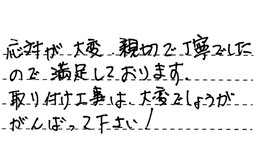 応対が大変親切で丁寧でした
ので満足しております。
取り付け工事は、大変でしょうが
がんばって下さい!